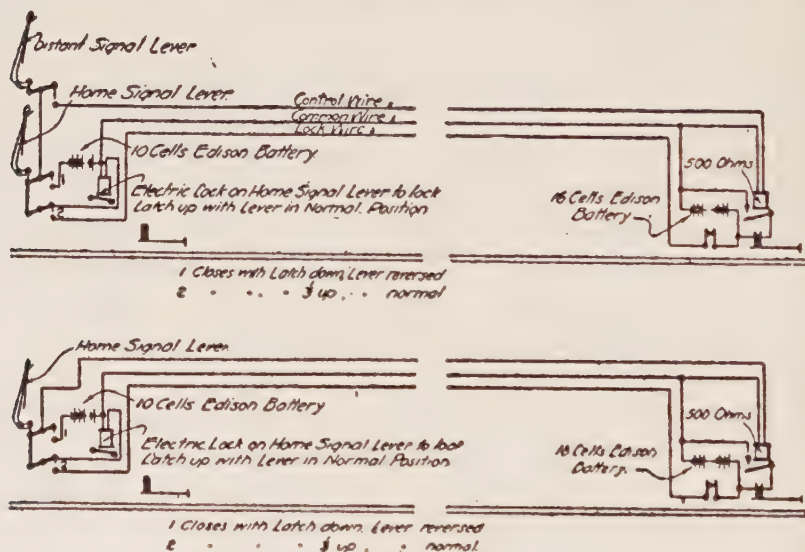 Distant Signal Lever
Home Signal Lever.
Control Wire
Common Wire
Lock Wire
10 Cells Edison Battery.
Electric Lock on Home Signal Lever to lock
Latch up with Lever in Normal Position
500 Ohms
16 Cells Edison
Battery
1 Closes with Latch down, Lever reversed
2 " " " ½ up, " " normal
Home Signal Lever.
10 Cells Edison Battery
Electric Lock on Home Signal Lever to lock
Latch up with Lever in Normal Position
500 Ohms
16 Cells Edison
Battery.
1 Closes with Latch down, Lever reversed
2 " " " ½ up, " normal.